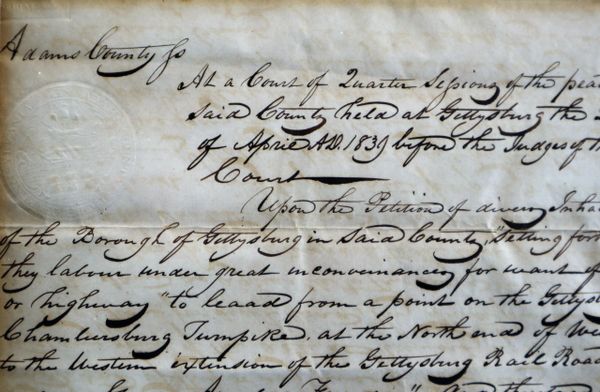 Adams County ss
At a Court of Quarter Sessions of the pea
Said County held at Gettysburg the
of April A.D. 1839 before the Judges of t
Court
Upon the Petition of divers Inha
of the Borough of Gettysburg in said County, "Setting for
they labour under great inconveinancy for want of
or highway "to leaad from a point on the Gettysb
Chambersburg Turnpike, at the North end of We
to the Western extension of the Gettysburg Rail Road